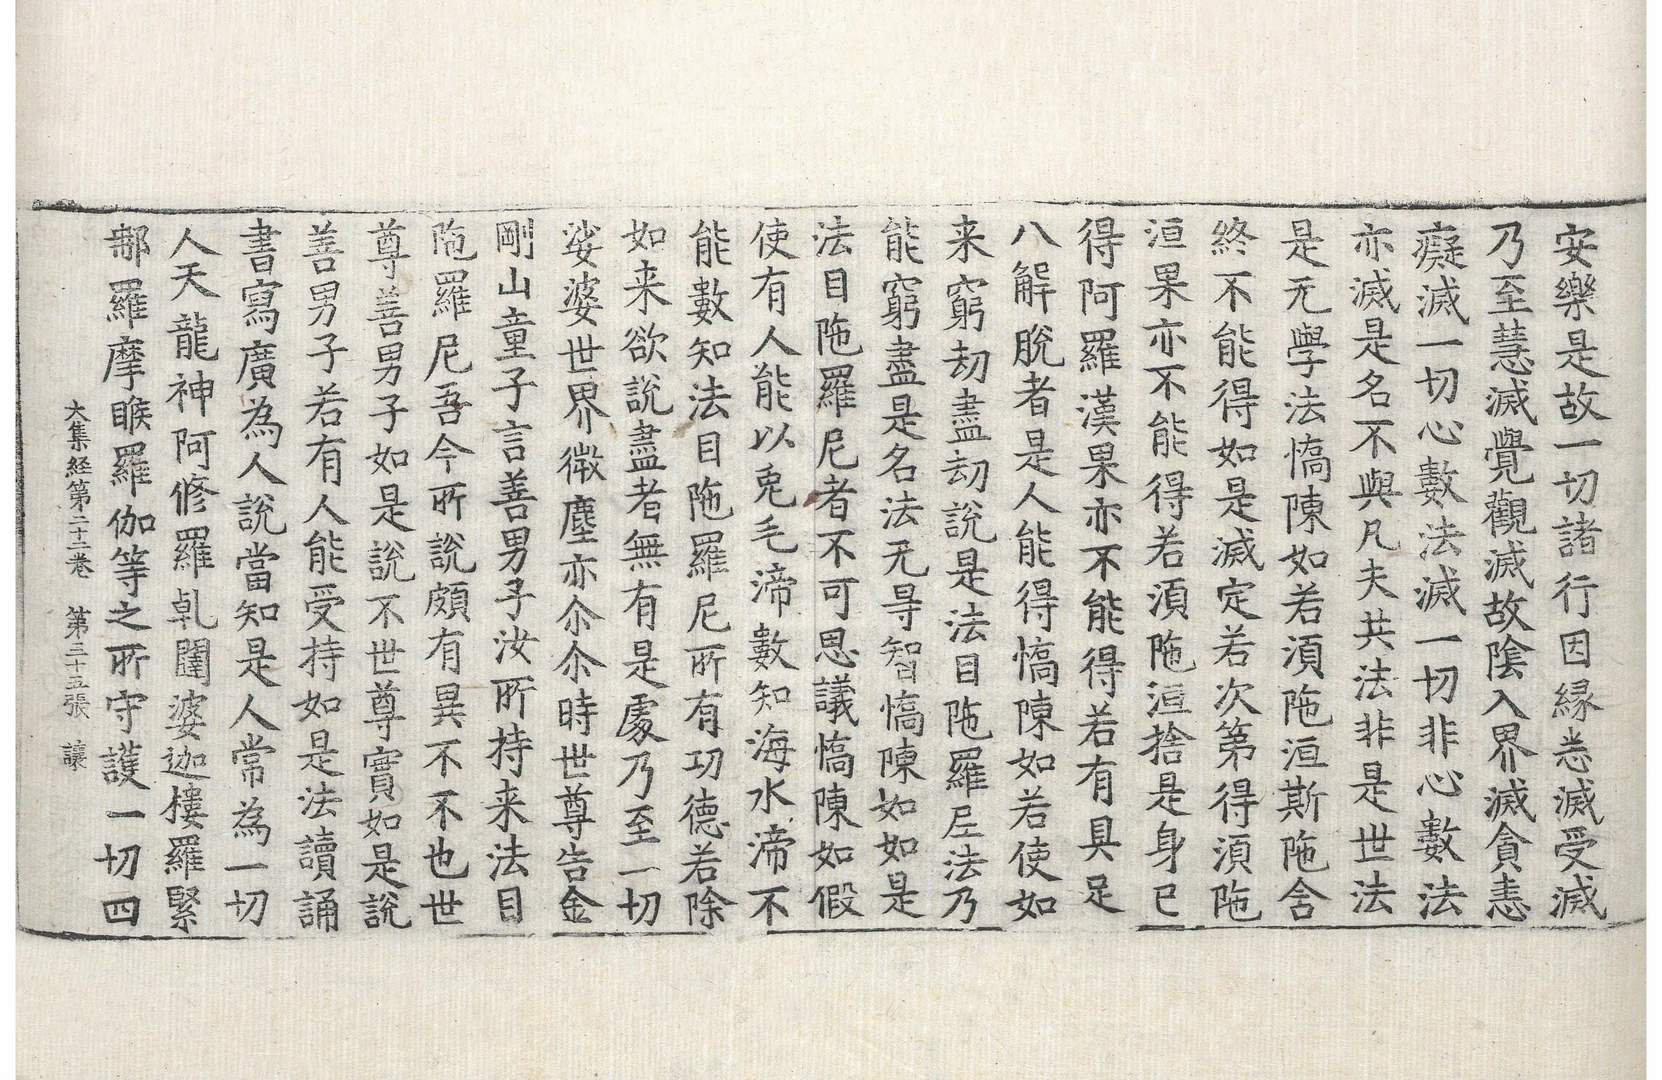 安樂是故一切諸行因緣悉滅受滅
乃至慧滅覺觀滅故陰入界滅貪恚
癡滅一切心數法滅一切非心數法
亦滅是名不與凡夫共法非是世法
是无學法憍陳如若湏陁洹斯陁含
終不能得如是滅定若次第得湏陁
洹果亦不能得若湏陁洹捨是身已
得阿羅漢果亦不能得若有具足
八解脫者是人能得憍陳如若使如
来窮劫盡劫說是法目陁羅尼法乃
能窮盡是名法无㝵智憍陳如如是
法目陁羅尼者不可思議憍陳如假
使有人能以兎毛渧數知海水渧不
能數知法目陁羅尼所有功德若除
如来欲說盡者無有是處乃至一切
娑婆世界微塵亦尒尒時世尊告金
剛山童子言善男子汝所持来法目
陁羅尼吾今所說頗有異不不也世
尊善男子如是說不世尊實如是說
善男子若有人能受持如是法讀誦
書寫廣為人說當知是人常為一切
人天龍神阿修羅乹闥婆迦樓羅緊
那羅摩睺羅伽等之所守護一切四
大集経第二十二卷　第三十五張　讓